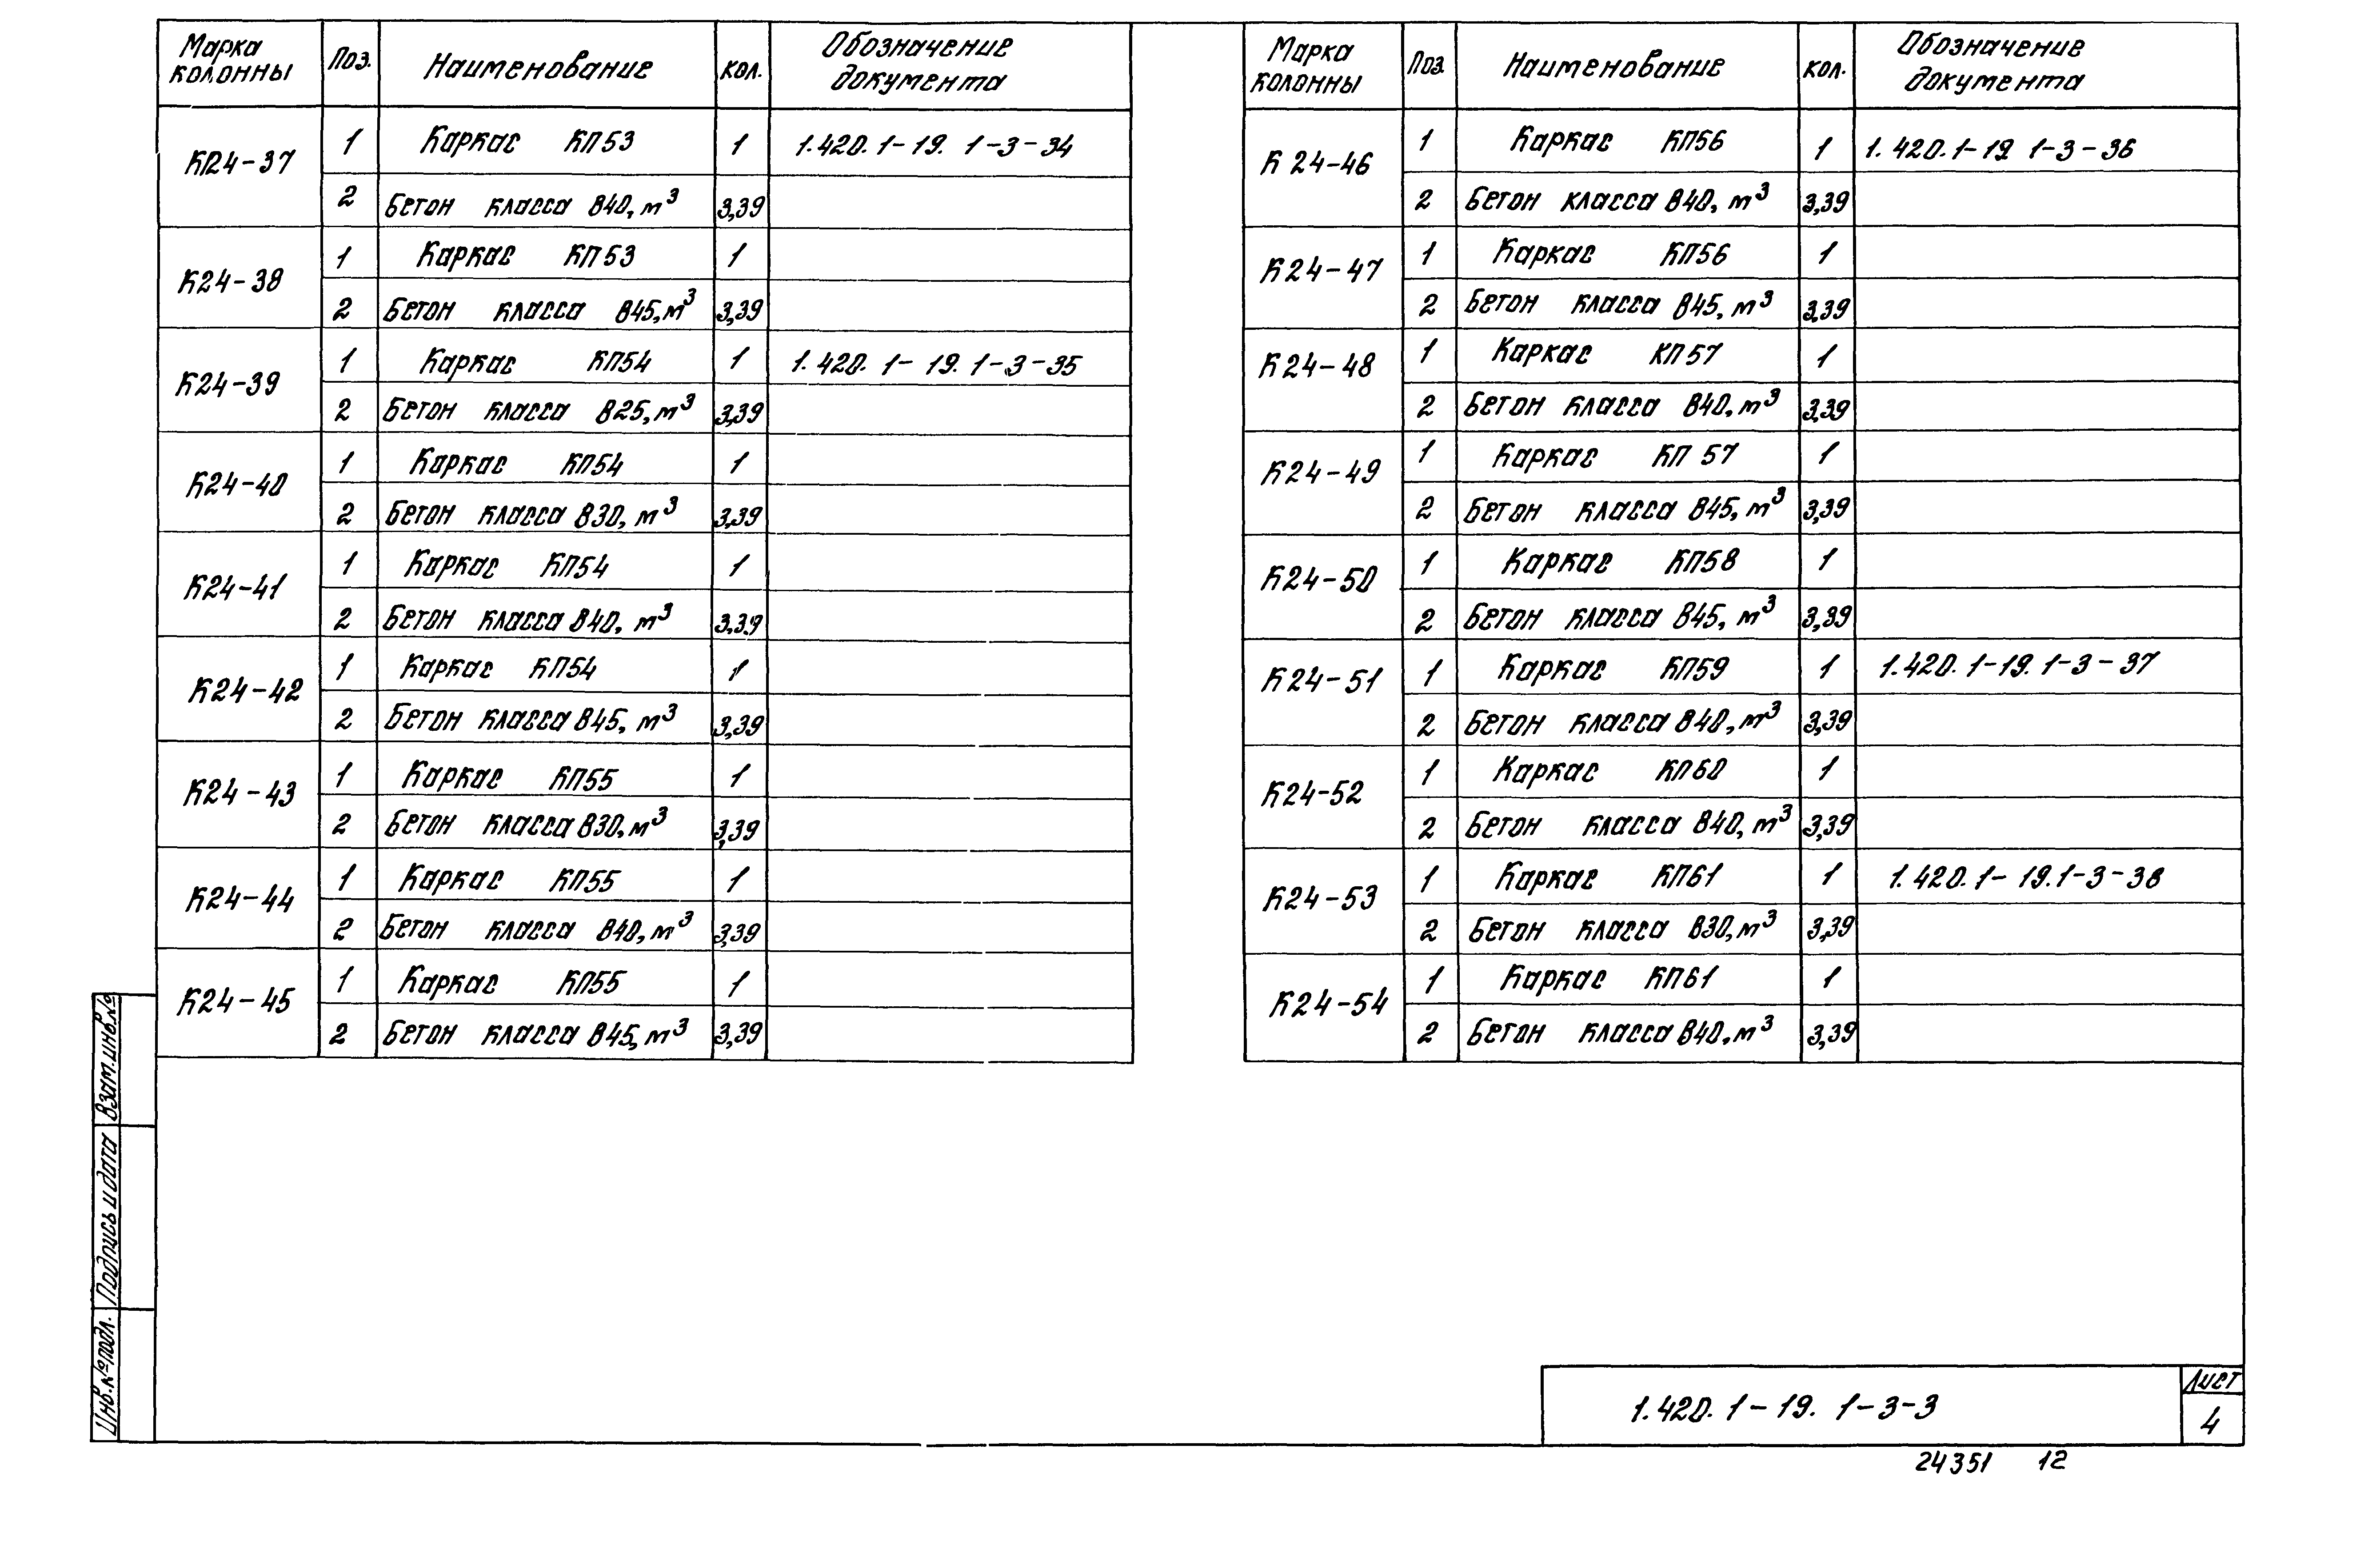 Марка колонны Поз. Наименование кол. Обозначение документа
К24-37 1 Каркас КП53 1 1.420.1-19. 1-3-34
2 Бетон класса В40, м³ 3,39
К24-38 1 Каркас КП53 1
2 Бетон класса В45, м³ 3,39
К24-39 1 Каркас КП54 1 1.420.1-19.1-3-35
2 Бетон класса В25, м³ 3,39
К24-40 1 Каркас КП54 1
2 Бетон класса В30, м³ 3,39
К24-41 1 Каркас КП54 1
2 Бетон класса В40, м³ 3,39
К24-42 1 Каркас КП54 1
2 Бетон класса В45, м³ 3,39
К24-43 1 Каркас КП55 1
2 Бетон класса В30, м³ 3,39
К24-44 1 Каркас КП55 1
2 Бетон класса В40, м³ 3,39
К24-45 1 Каркас КП55 1
2 Бетон класса В45, м³ 3,39
Марка колонны Поз. Наименование кол. Обозначение документа
К24-46 1 Каркас КП56 1 1.420.1-19 1-3-36
2 Бетон класса В40, м³ 3,39
К24-47 1 Каркас КП56 1
2 Бетон класса В45, м³ 3,39
К24-48 1 Каркас КП57 1
2 Бетон класса В40, м³ 3,39
К24-49 1 Каркас КП57 1
2 Бетон класса В45, м³ 3,39
К24-50 1 Каркас КП58 1
2 Бетон класса В45, м³ 3,39
К24-51 1 Каркас КП59 1 1.420.1-19.1-3-37
2 Бетон класса В40, м³ 3,39
К24-52 1 Каркас КП60 1
2 Бетон класса В40, м³ 3,39
К24-53 1 Каркас КП61 1 1.420.1-19.1-3-38
2 Бетон класса В30, м³ 3,39
К24-54 1 Каркас КП61 1
2 Бетон класса В40, м³ 3,39
Взам. инв. №
Подпись и дата
Инв. № подл.
1.420.1-19. 1-3-3
Лист
4
24351 12